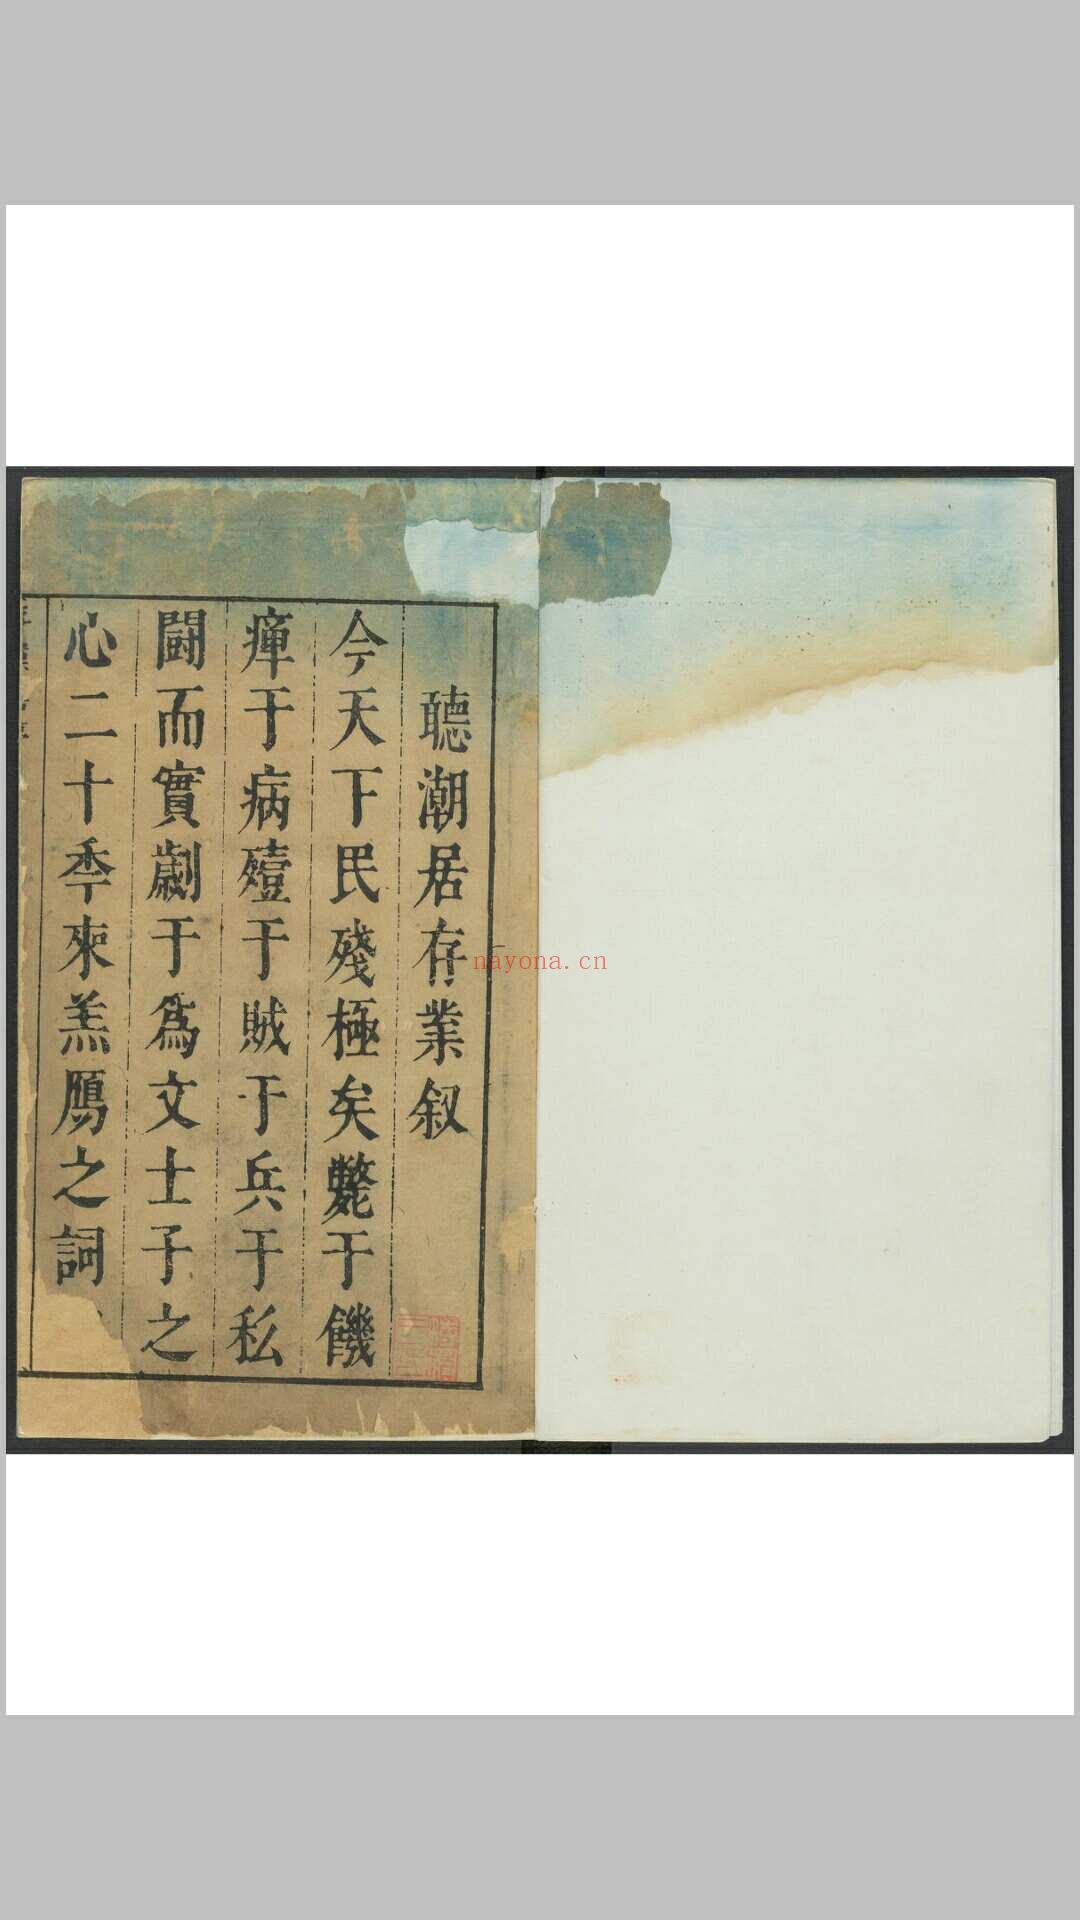 聽潮居存業叙
今天下民殘極矣斃于饑
瘅于病殪于賊于兵于私
鬪而實劌于為文士子之
心二十季來羔鴈之詞
nayona.cn